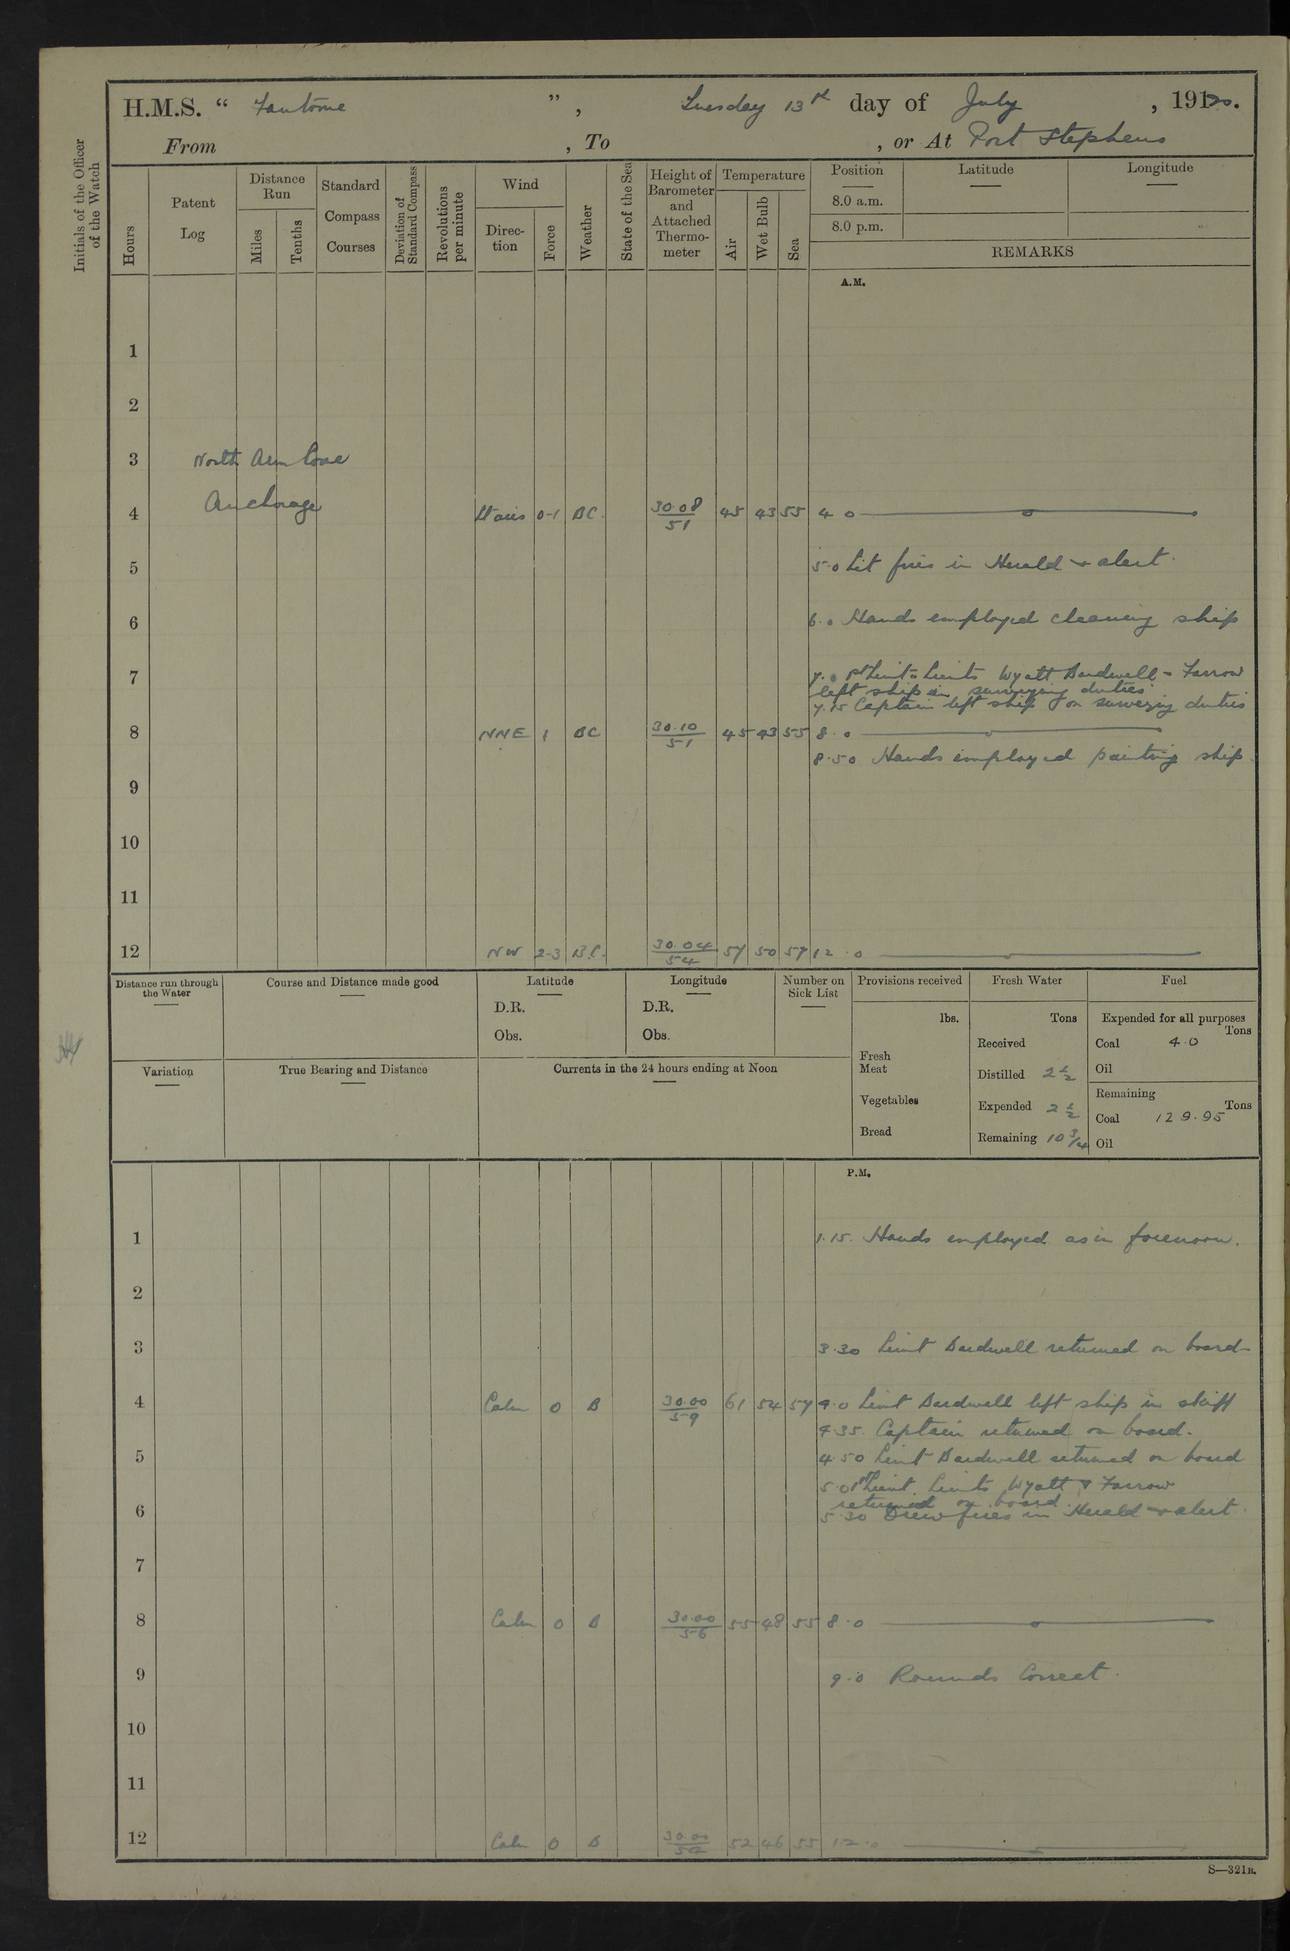 H.M.S. " Fantome ", Tuesday 13th day of July, 1920.
From , To , or At Port Stephens
Initials of the Officer of the Watch
Hours
Patent Log
Distance Run
Miles
Tenths
Standard Compass Courses
Deviation of Standard Compass
Revolutions per minute
Wind
Direction
Force
Weather
State of the Sea
Height of Barometer and Attached Thermometer
Temperature
Air
Wet Bulb
Sea
Position
8.0 a.m.
8.0 p.m.
Latitude
Longitude
REMARKS
A.M.
1
2
3 North Arm Cove
4 Anchorage 0-1 BC. 30.08/51 45 43 55 4.0
5 5.0 Lit fires in Herald & alert.
6 6.0 Hands employed cleaning ship
7 7.0 1st Lieut & Lieuts Wyatt Bardwell & Farrow
left ship on surveying duties
7.15 Captain left ship on surveying duties
8 NNE 1 BC 30.10/51 45 43 55 8.0
8.50 Hands employed painting ship.
9
10
11
12 NW 2-3 B.C. 30.04/54 57 50 57 12.0
Distance run through the Water
Course and Distance made good
Latitude
D.R.
Obs.
Longitude
D.R.
Obs.
Number on Sick List
Provisions received
lbs.
Fresh Meat
Vegetables
Bread
Fresh Water
Tons
Received
Distilled 2 1/2
Expended 2 1/2
Remaining 10 3/4
Fuel
Expended for all purposes
Tons
Coal 4.0
Oil
Remaining
Tons
Coal 129.95
Oil
Variation
True Bearing and Distance
Currents in the 24 hours ending at Noon
P.M.
1 1.15. Hands employed as in forenoon.
2
3 3.30 Lieut Bardwell returned on board
4 Calm 0 B 30.00/59 61 54 57 4.0 Lieut Bardwell left ship in skiff
4.35. Captain returned on board.
5 4.50 Lieut Bardwell returned on board
5.0 1st Lieut. Lieuts Wyatt & Farrow
returned on board.
6 5.30 Drew fires in Herald & alert.
7
8 Calm 0 B 30.00/56 55 48 55 8.0
9 9.0 Rounds Correct.
10
11
12 Calm 0 B 30.00/52 52 46 55 12.0
S—321B.